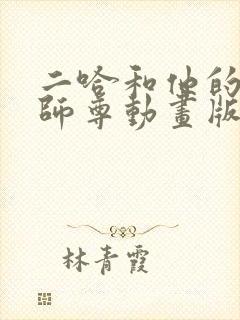 二哈和他的
師尊動畫版
林青霞